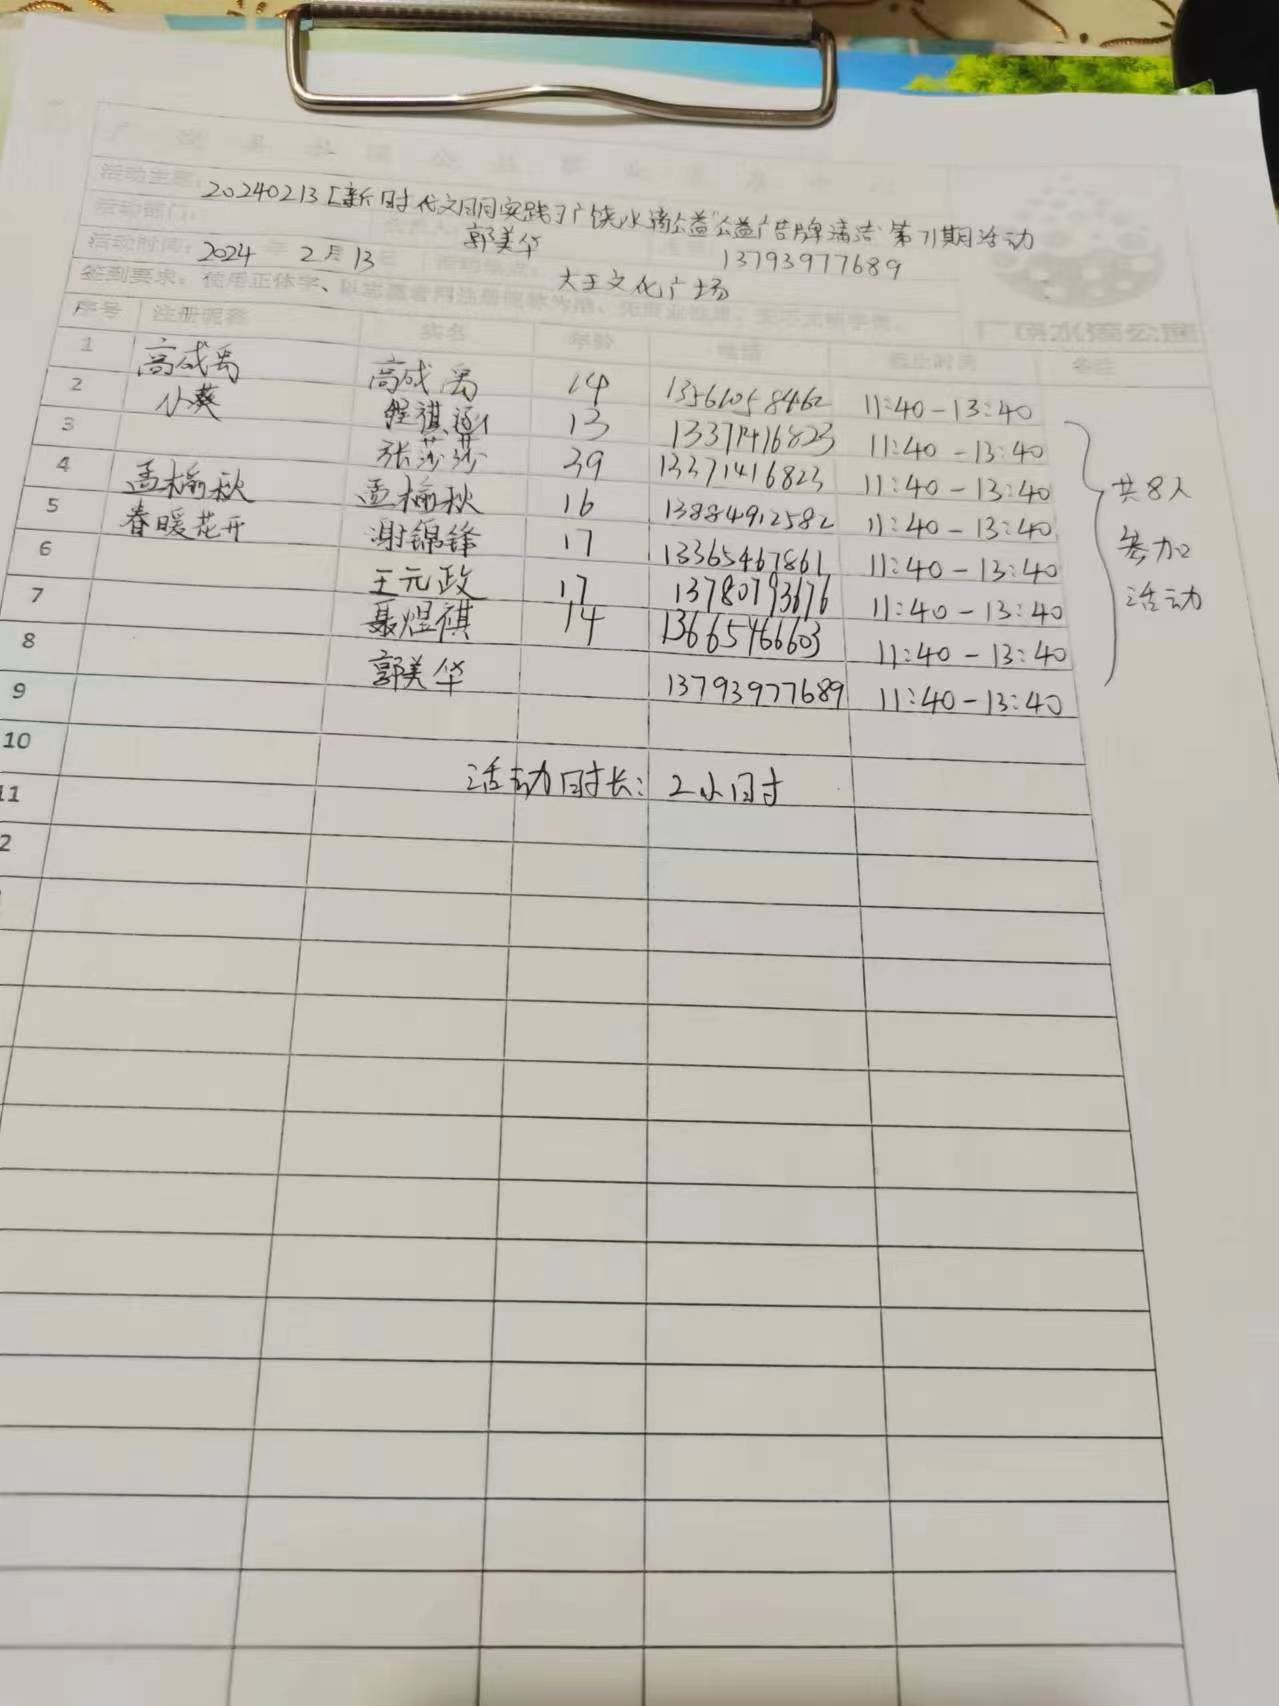 活动主题: 20240213[新时代文明实践]广饶水滴公益"公益广告牌清洁"第71期活动
活动部门: 郭美华 13793977689
活动时间: 2024年2月13日 大王文化广场
签到要求: 使用正体字、以志愿者网注册昵称为准、
广饶水滴公益
序号 注册昵称 实名 年龄 电话 起止时间 备注
1 高成禹 高成禹 14 13561058462 11:40-13:40
2 小葵 13 13371416823 11:40-13:40
3 张莎莎 39 13371416823 11:40-13:40
4 孟榆秋 孟榆秋 16 13884912582 11:40-13:40
5 春暖花开 谢锦锋 17 13365467861 11:40-13:40
6 王元政 17 13780793676 11:40-13:40
7 聂煜祺 14 13665466603 11:40-13:40
8 郭美华 13793977689 11:40-13:40
共8人
参加
活动
9
10
活动时长: 2小时
11
2